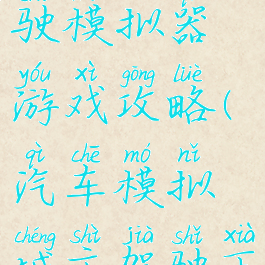 驶模拟器
yóu xì gōng lüè
游戏攻略(
qì chē mó nǐ
汽车模拟
chéng shì jià shǐ xià
城市驾驶下